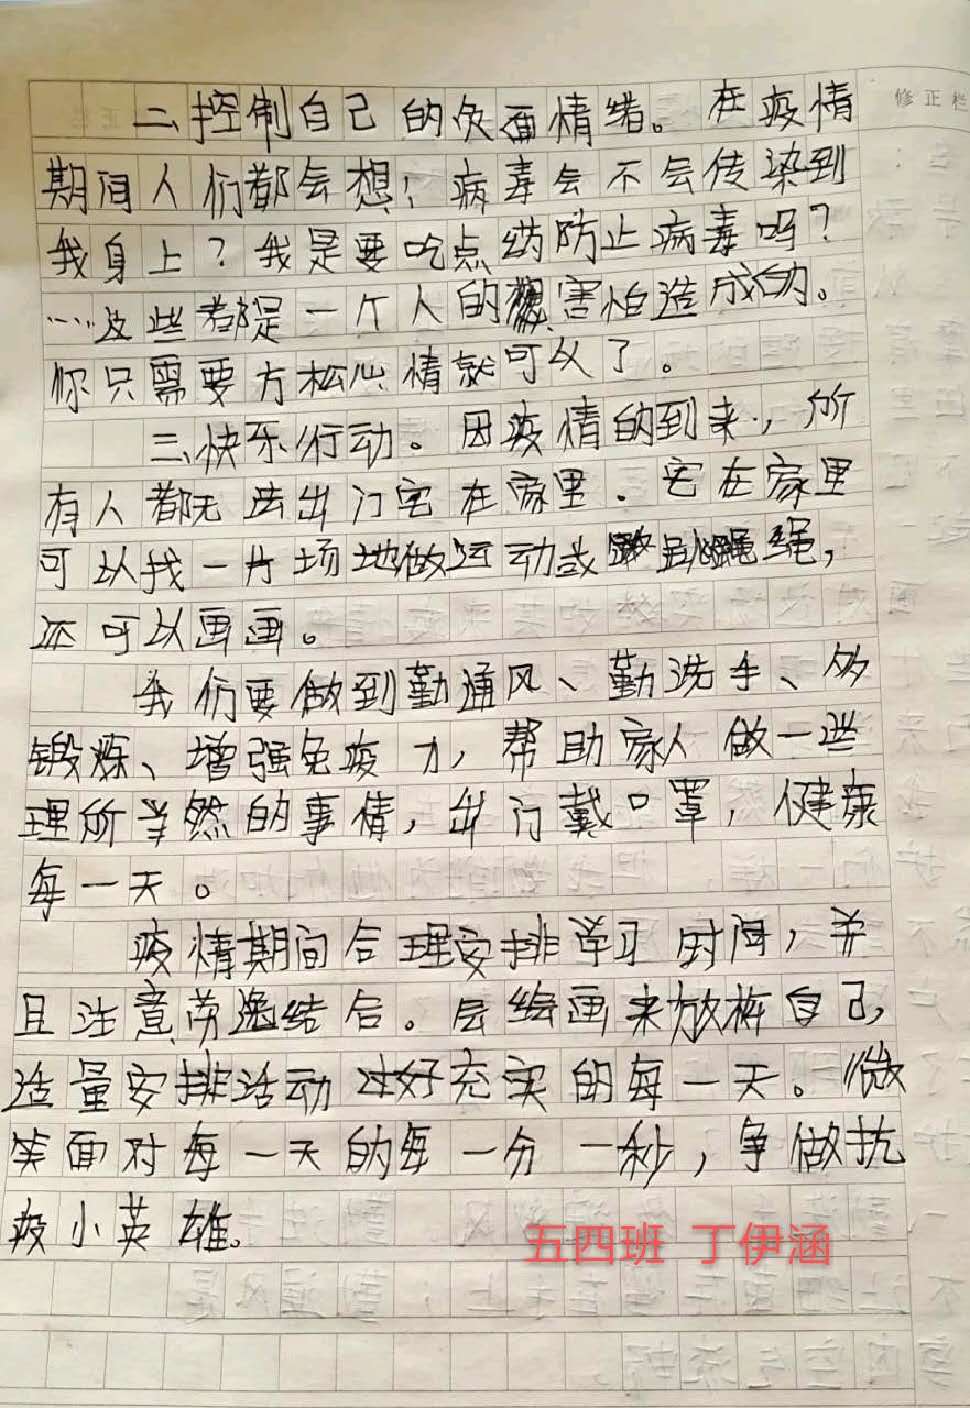 修正栏
二、控制自己的负面情绪。在疫情
期间人们都会想；病毒会不会传染到
我身上？我是要吃点药防止病毒吗？
……这些都是一个人的想害怕造成的。
你只需要方松心情就可以了。
三、快乐行动。因疫情的到来，所
有人都无法出门宅在家里．宅在家里
可以找一片场地做运动或跳绳，
还可以画画。
我们要做到勤通风、勤洗手、多
锻炼、增强免疫力，帮助家人做一些
理所当然的事情，出门戴口罩，健康
每一天。
疫情期间合理安排学习时间，并
且注意劳逸结合。会绘画来放松自己，
适量安排活动过好充实的每一天。微
笑面对每一天的每一分一秒，争做抗
疫小英雄。
五四班 丁伊涵